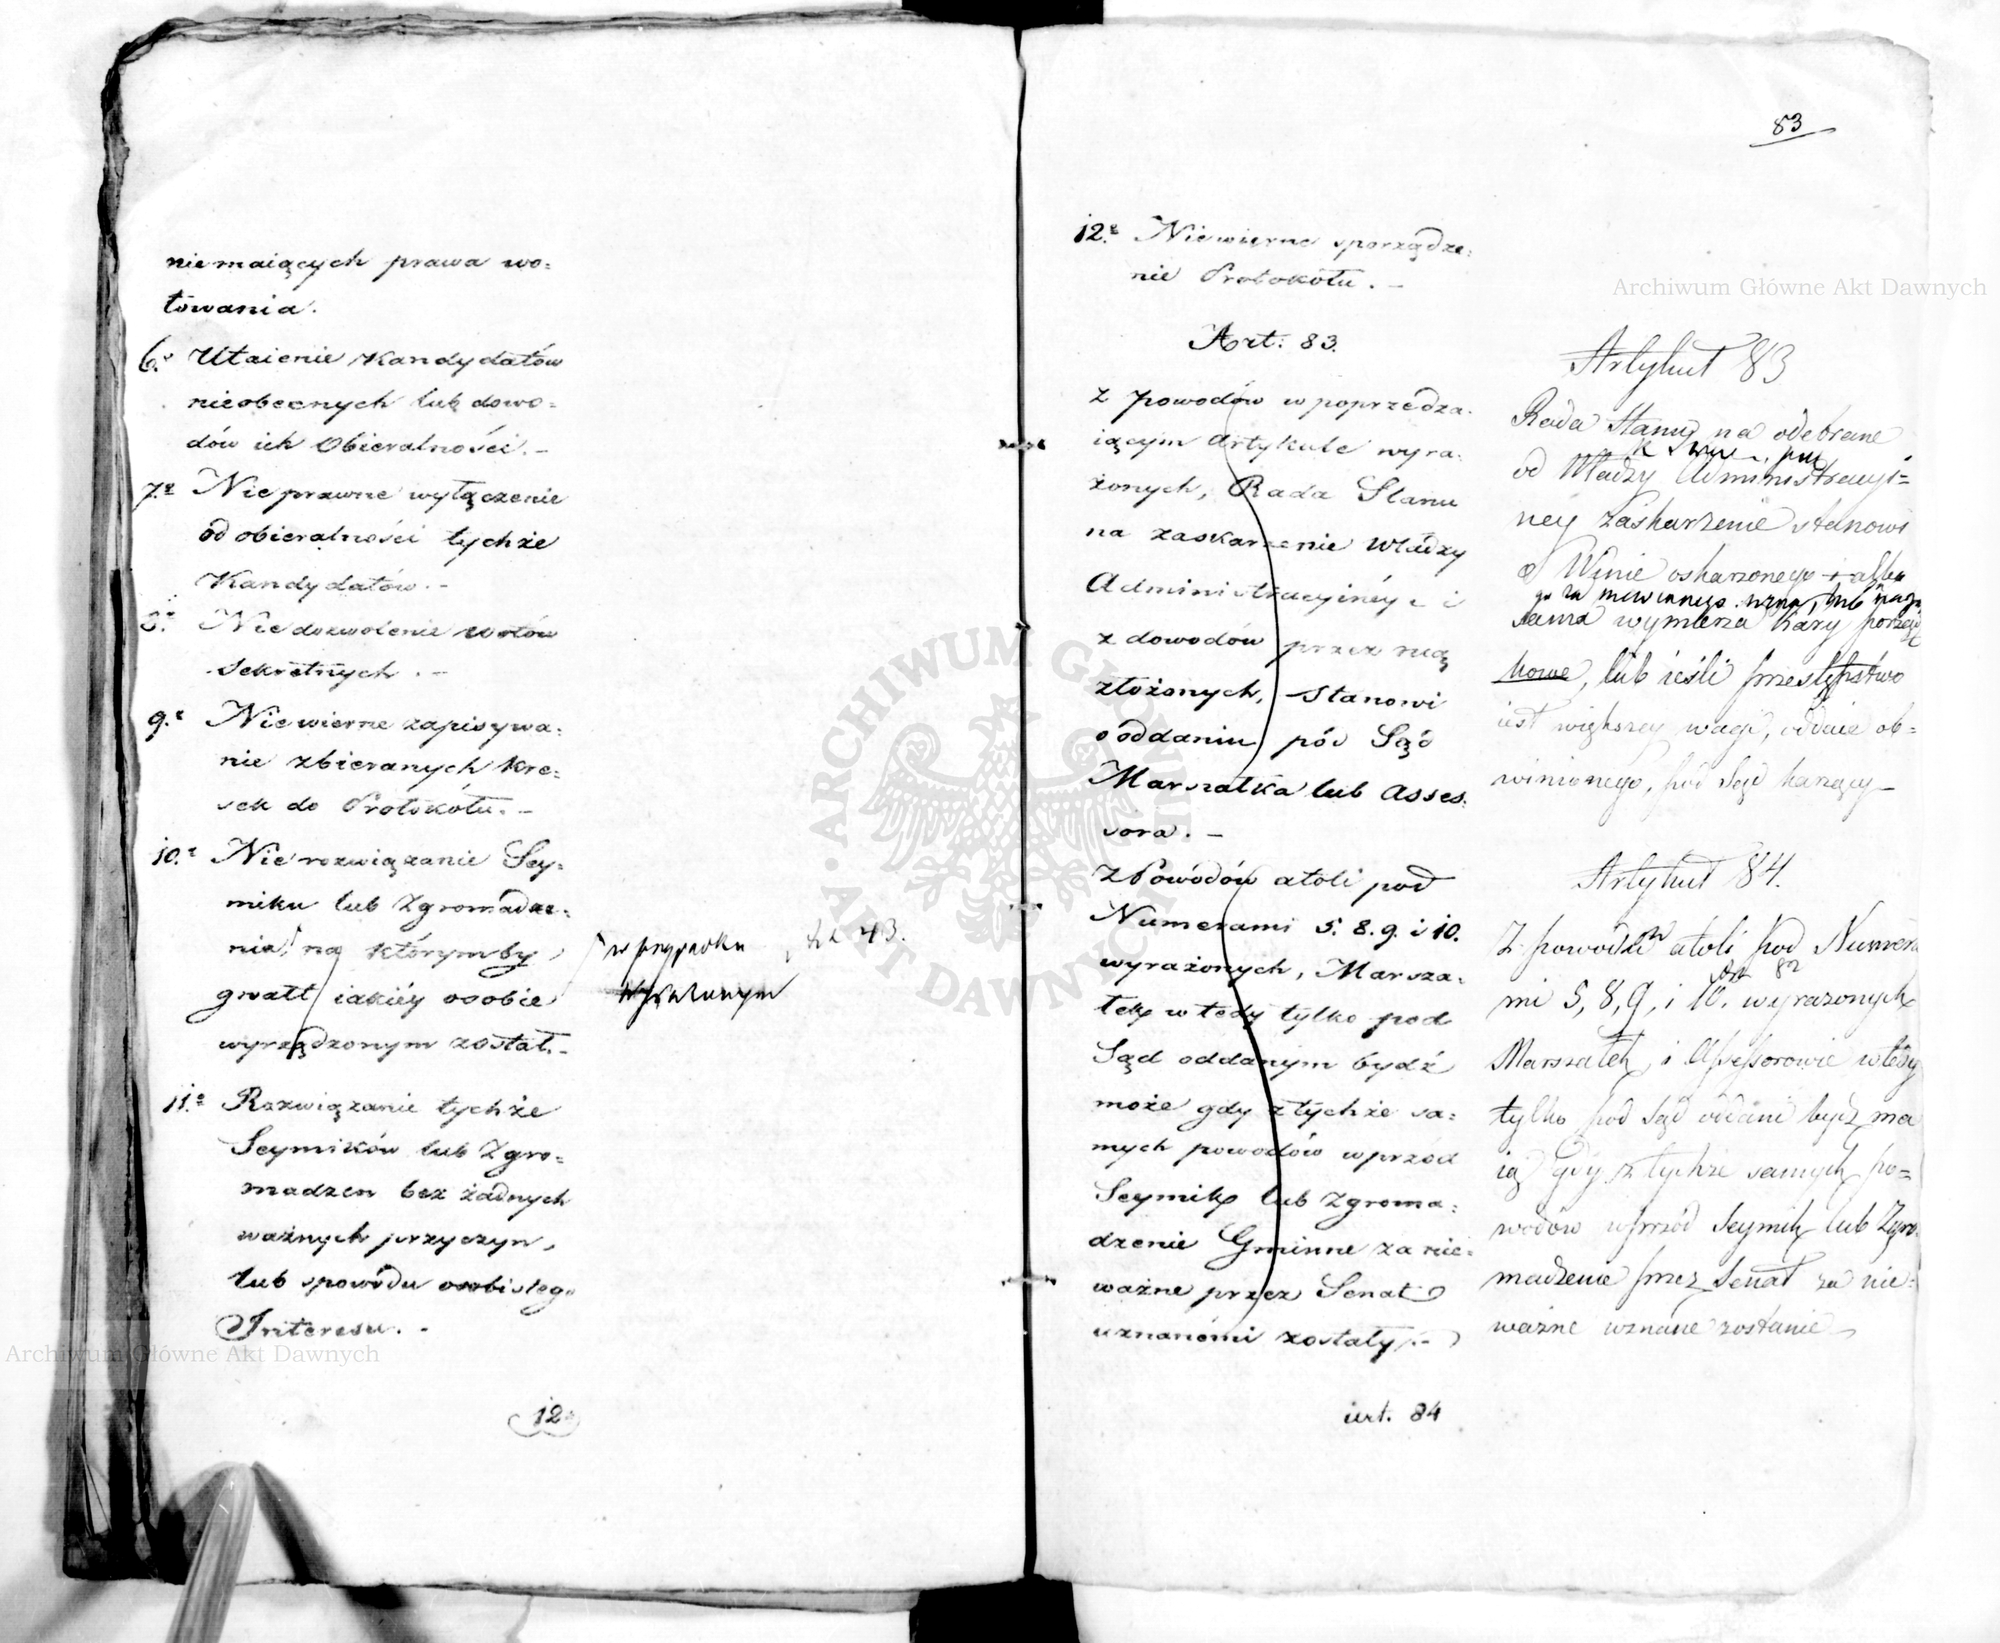 niemaiących prawa wo=
towania.
6.e Utaienie Kandydatów
nieobecnych lub dowo=
dów ich Obieralności. –
7.e Nieprawne wyłączenie
od obieralności tychże
Kandydatów. –
8.e Niedozwolenie wotów
sekretnych. –
9.e Niewierne zapisywa=
nie zbieranych kre=
sek do Protokółu. –
10.e Nierozwiązanie Sey=
miku lub Zgromadze=
nia, na którymby
gwałt iakiéy osobie
wyrządzonym został. –
w przypadku
wskazanym
43.
11.e Rozwiązanie tychże
Seymików lub Zgro=
madzen bez żadnych
ważnych przyczyn,
lub spowodu osobistego
Interesu. –
12e
83
12.e Niewierne sporządze=
nie Protokółu. –
Art: 83.
Z powodów w poprzedza=
iącym Artykule wyra=
żonych, Rada Stanu
na zaskarzenie Władzy
Administracyinéy i
z dowodów przez nią
złożonych, stanowi
o oddaniu pód Sąd
Marszałka lub Asses=
sora. –
Z Powódów atoli pod
Numerami 5. 8. 9. i 10.
wyrażonych, Marsza=
łek wtedy tylko pod
Sąd oddanym bydź
może gdy z tychże sa=
mych powodów wprzód
Seymik lub Zgroma=
dzenie Gminne za nie=
ważne przez Senat
uznanémi zostały. –
art. 84
Artykuł 83
Rada Stanu na odebrane
od Władzy Administracyi=
ney zaskarzenie stanowi
o Winie oskarzonego i albo
go za niewinnego uzna, lub
sama wymierza kary porząd
kowe, lub ieśli przestępstwo
iest większey wagi, oddaie ob=
winionego, pód Sąd karzący –
Artykuł 84.
Z powodów atoli pod Numera
Art 82
mi 5, 8, 9, i 10. wyrazonych
Marszałek i Assessorowie wtedy
tylko pod Sąd oddani bydz ma
ią gdy z tychże samych po=
wodów wprzód Seymik lub Zgro
madzenie przez Senat za nie=
ważne uznane zostanie
Archiwum Główne Akt Dawnych
Archiwum Główne Akt Dawnych
ARCHIWUM GŁÓWNE AKT DAWNYCH